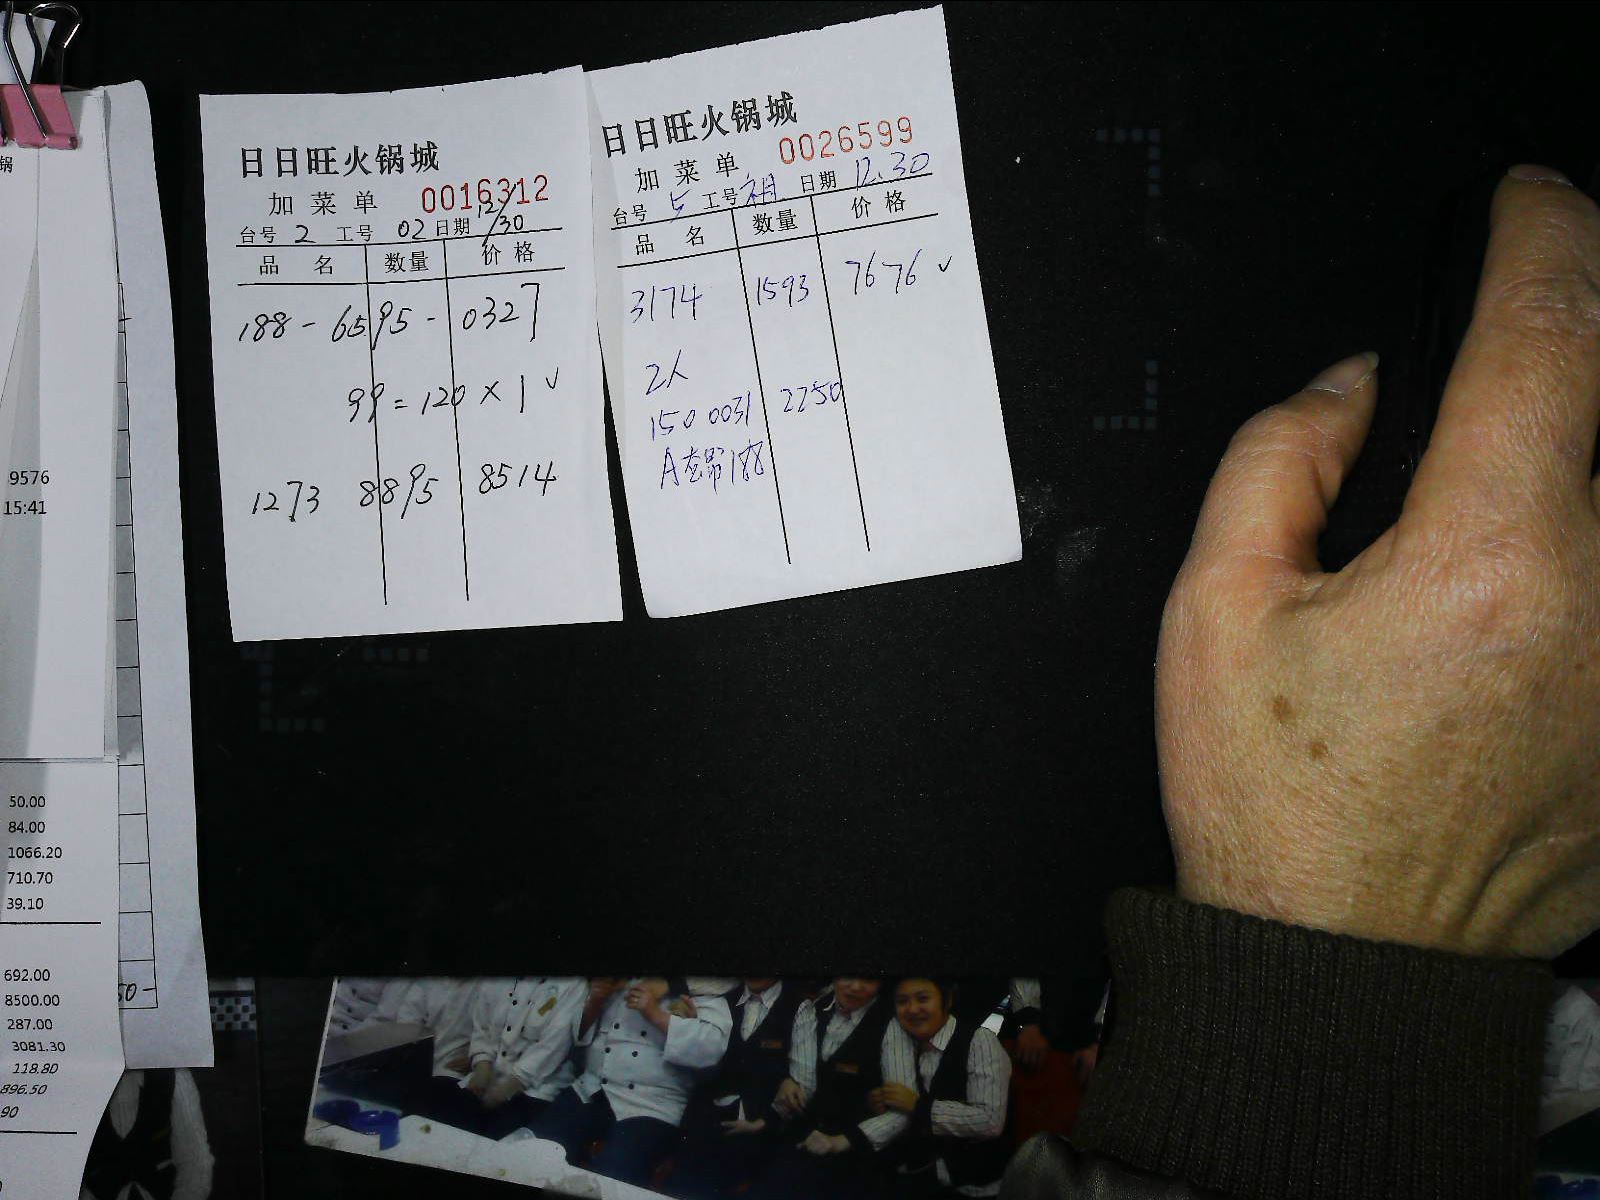 锅
9576
15:41
50.00
84.00
1066.20
710.70
39.10
692.00
8500.00
287.00
3081.30
118.80
896.50
90
50-
日日旺火锅城
加菜单 0016312
台号 2 工号 02 日期 12/30
品名 数量 价格
188-6595-0327
99=120×1√
1273 8895 8514
日日旺火锅城
加菜单 0026599
台号 5 工号 日期 12.30
品名 数量 价格
3174 1593 7676√
2人
150 0031 2250
A套帮188